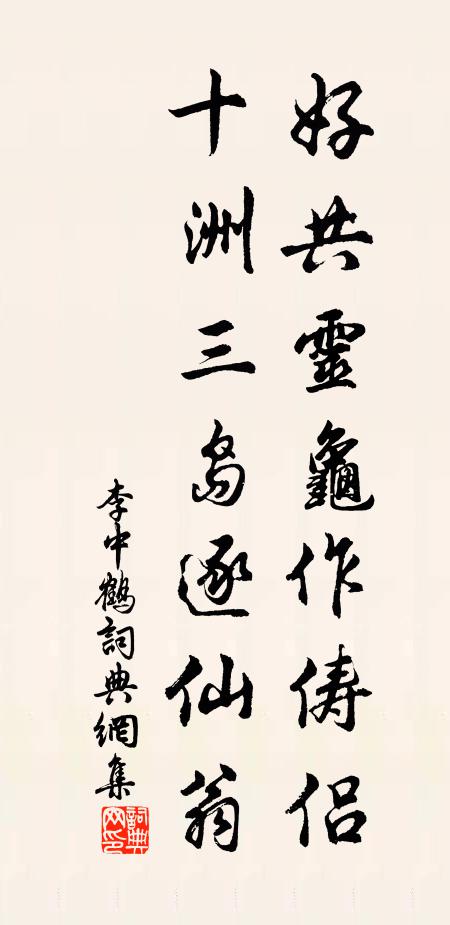 好共靈龜作儔侶
十洲三島逐仙翁
李中鶴詞典網集
詞典網印